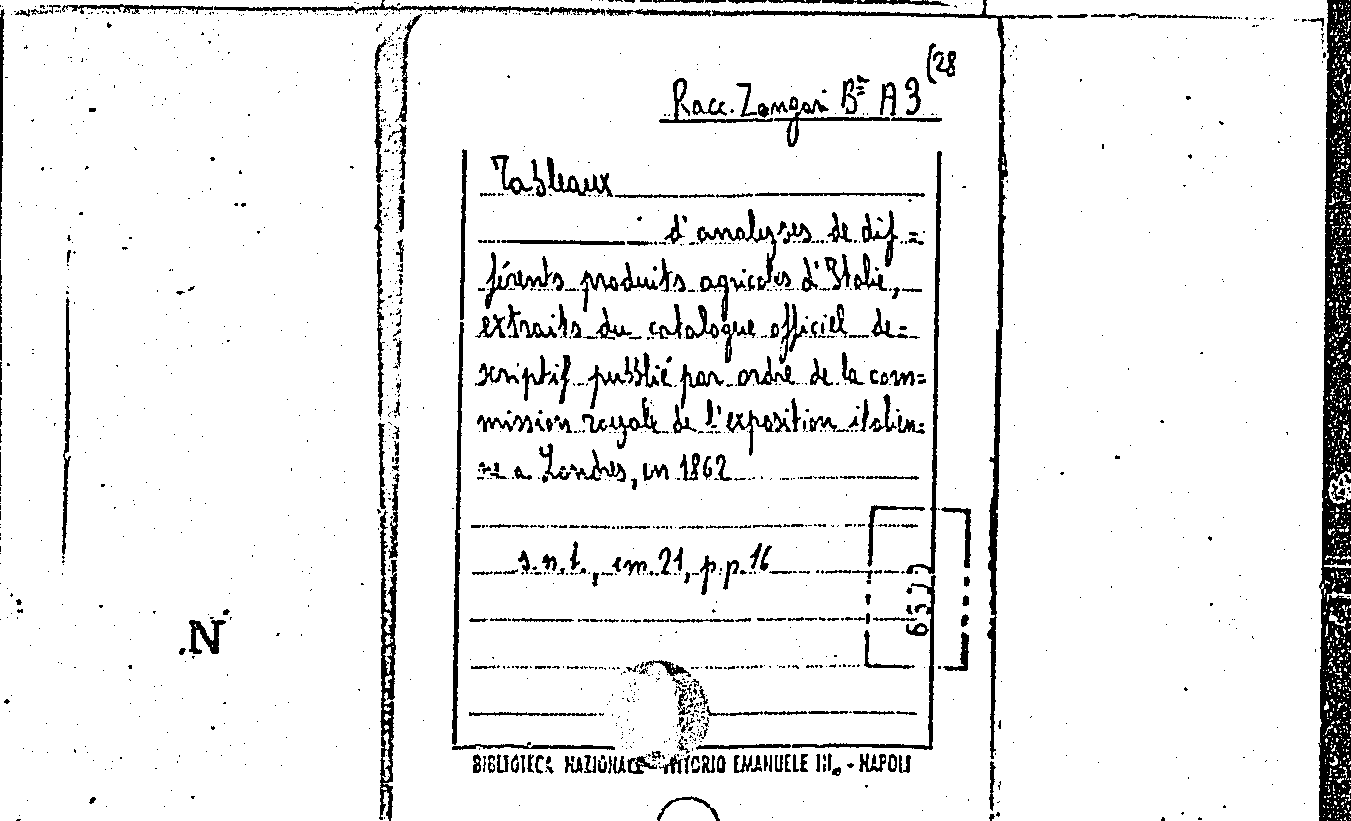 (28
Racc. Zangari Bᵗᵃ A3
Tableaux
d'analyses de dif=
férents produits agricoles d'Italie,
extraits du catalogue officiel de=
scriptif pubblié par ordre de la com=
mission royale de l'exposition italien=
ne a Londres, en 1862
s.n.t., cm.21, pp.16
N
BIBLIOTECA NAZIONALE - VITTORIO EMANUELE III. - NAPOLI